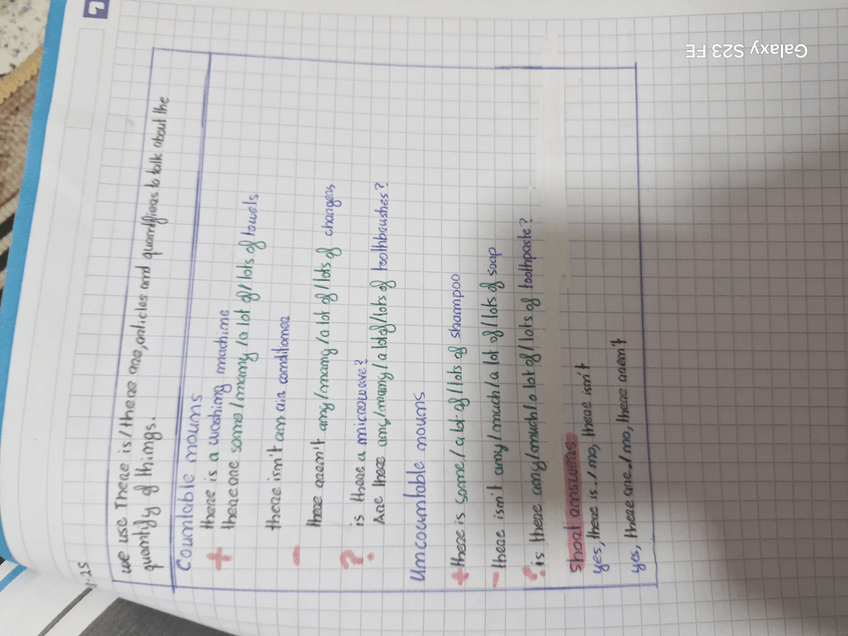 1.25
we use There is/there are, articles and quantifiers to talk about the
quantify of things.
Countable nouns
+ there is a washing machine
there are some/many/a lot of/lots of towels
there isn't an air conditioner
- there aren't any/many/a lot of/lots of changers
? is there a microwave?
Are there any/many/a lot of/lots of toothbrushes?
Uncountable nouns
+ there is some/a lot of/lots of shampoo
- there isn't any/much/a lot of/lots of soap
? is there any/much/a lot of/lots of toothpaste?
Short answers
yes, there is./no, there isn't
yes, there are./no, there aren't
Galaxy S23 FE